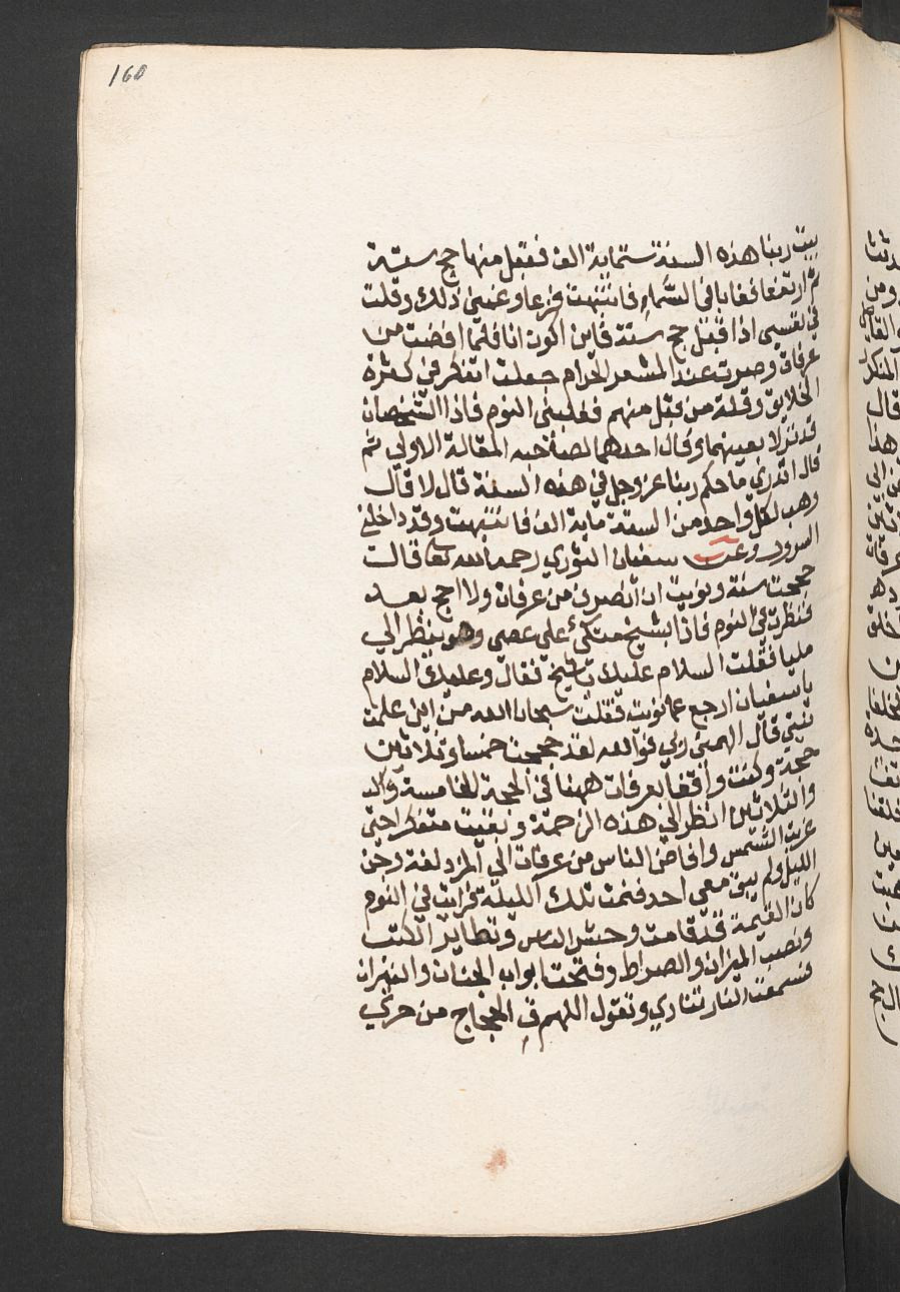 160
بيت ربنا هذه السنة ستماية الف فقبل منها حج ستة
ثم ارتفعا فغابا في السماء فانتبهت فزعا وغمني ذلك وقلت
في نفسي اذا قبل حج ستة فاين اكون انا فلما افضت من
عرفات وصرت عند المشعر الحرام جعلت اتفكر في كثرة
الخلايق وقلة من قبل منهم فغلبني النوم فاذا الشخصان
قد نزلا بعينهما وقال احدهما لصاحبه المقالة الاولي ثم
قال اتدري ما حكم ربنا عز وجل في هذه السنة قال لا قال
وهب لكل واحد من الستة ماية الف فانتبهت وقد داخلني
السرور وعن سفيان الثوري رحمه الله تعا قالت
حججت سنة ونويت ان انصرف من عرفات ولا احج بعد
فنظرت في النوم فاذا بشيخ متكئ علي عصي وهو ينظر الي
مليا فقلت السلام عليك يا شيخ فقال وعليك السلام
يا سفيان ارجع عما نويت فقلت سبحان الله من اين علمت
نيتي قال الهمني ربي فوالله لقد حججت خمسا وثلاثين
حجة وكنت واقفا بعرفات ههنا في الحجة الخامسة
والثلاثين انظر الي هذه الزحمة وبقيت متفكرا حتي
غربت الشمس وافاض الناس من عرفات الي المزدلفة وجن
الليل ولم يبق معي احد فنمت تلك الليلة فرايت في النوم
كان القيمة قد قامت وحشر الناس وتطاير الكتب
ونصب الميزان والصراط وفتحت ابواب الجنان والنيران
فسمعت النار تنادي وتقول اللهم ق الحجاج من حري